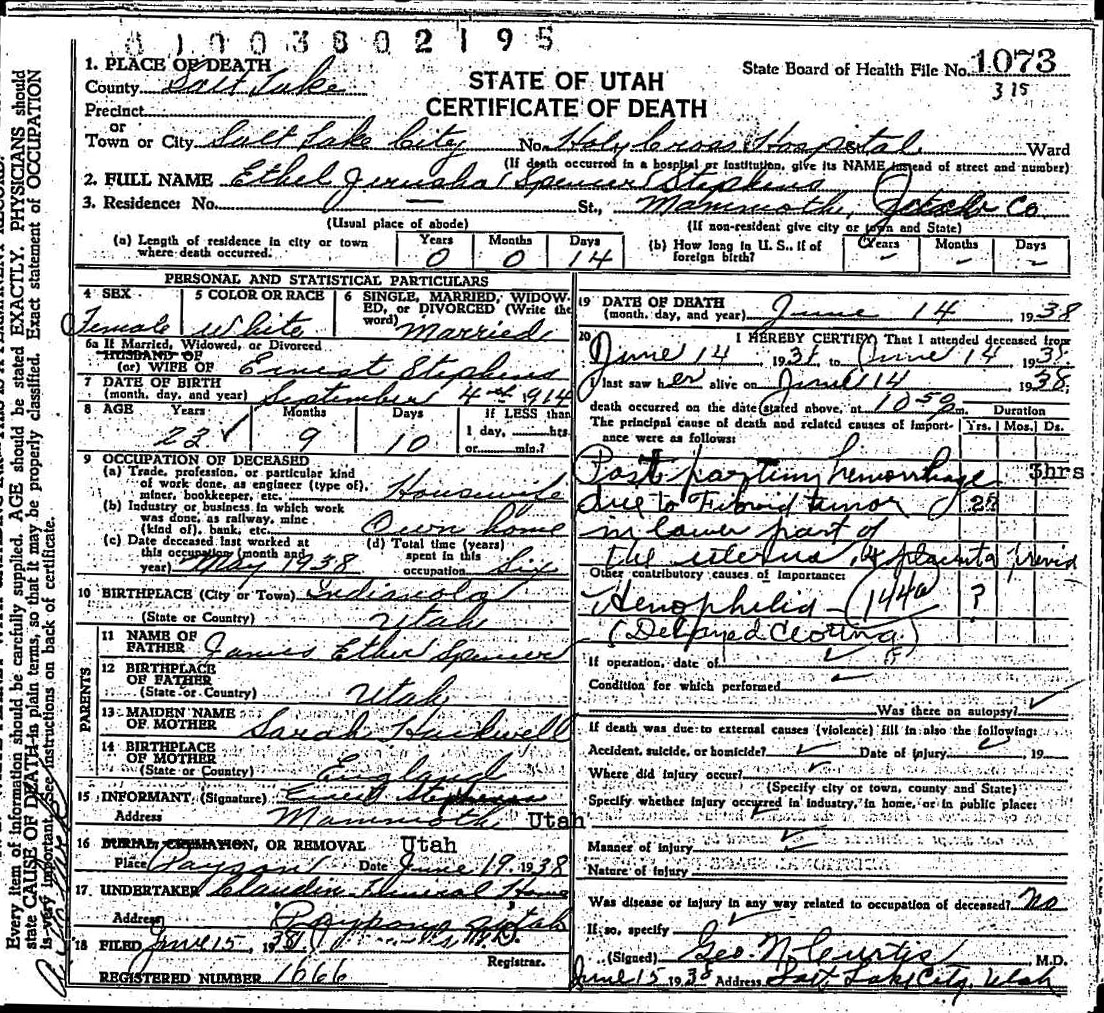 01003802195
1. PLACE OF DEATH
County Salt Lake
STATE OF UTAH
CERTIFICATE OF DEATH
State Board of Health File No. 1073
315
Precinct
or
Town or City Salt Lake City No. Holy Cross Hospital Ward
(If death occurred in a hospital or institution, give its NAME instead of street and number)
2. FULL NAME Ethel Jerusha Spencer Stephens
3. Residence: No. — St., Mammoth, Co.
(Usual place of abode) (If non-resident give city or town and State)
(a) Length of residence in city or town where death occurred. Years 0 Months 0 Days 14
(b) How long in U. S., if of foreign birth? Years – Months – Days –
PERSONAL AND STATISTICAL PARTICULARS
4 SEX Female
5 COLOR OR RACE White
6 SINGLE, MARRIED, WIDOWED, or DIVORCED (Write the word) Married
6a If Married, Widowed, or Divorced
HUSBAND OF
(or) WIFE OF Ernest Stephens
7 DATE OF BIRTH
(month, day, and year) September 4th 1914
8 AGE Years 23 Months 9 Days 10 If LESS than
1 day, hrs.
or min.?
9 OCCUPATION OF DECEASED
(a) Trade, profession, or particular kind
of work done, as engineer (type of),
miner, bookkeeper, etc. Housewife
(b) Industry or business in which work
was done, as railway, mine
(kind of), bank, etc. Own home
(c) Date deceased last worked at
this occupation (month and
year) May 1938
(d) Total time (years)
spent in this
occupation Six
10 BIRTHPLACE (City or Town) Indianola
(State or Country) Utah
PARENTS
11 NAME OF
FATHER James Ether Spencer
12 BIRTHPLACE
OF FATHER
(State or Country) Utah
13 MAIDEN NAME
OF MOTHER Sarah Hackwell
14 BIRTHPLACE
OF MOTHER
(State or Country) England
15 INFORMANT (Signature) Ernest Stephens
Address Mammoth Utah
16 BURIAL, CREMATION, OR REMOVAL Utah
Place Payson Date June 19, 1938
17 UNDERTAKER Claudin Funeral Home
Address Payson, Utah
18 FILED June 15, 1938 M.D.
Registrar.
REGISTERED NUMBER 1066
19 DATE OF DEATH
(month, day, and year) June 14 1938
20 I HEREBY CERTIFY That I attended deceased from
June 14 1938 to June 14 1938
I last saw her alive on June 14 1938
death occurred on the date stated above, at 10:50 m.
Duration
The principal cause of death and related causes of importance were as follows: Yrs. Mos. Ds.
Post partum hemorrhage 3hrs
due to Fibroid tumor
in lower part of
the uterus & placenta previa
Other contributory causes of importance:
Hemophilia – 144a ?
(Delayed Clotting)
If operation, date of
Condition for which performed
Was there an autopsy?
If death was due to external causes (violence) fill in also the following:
Accident, suicide, or homicide? Date of injury 19
Where did injury occur?
(Specify city or town, county and State)
Specify whether injury occurred in industry, in home, or in public place:
Manner of injury
Nature of injury
Was disease or injury in any way related to occupation of deceased? No
If so, specify
(Signed) Geo. N. Curtis M.D.
June 15 1938 Address Salt Lake City, Utah
Every item of information should be carefully supplied. AGE should be stated EXACTLY. PHYSICIANS should
state CAUSE OF DEATH in plain terms, so that it may be properly classified. Exact statement of OCCUPATION
is very important. See instructions on back of certificate.